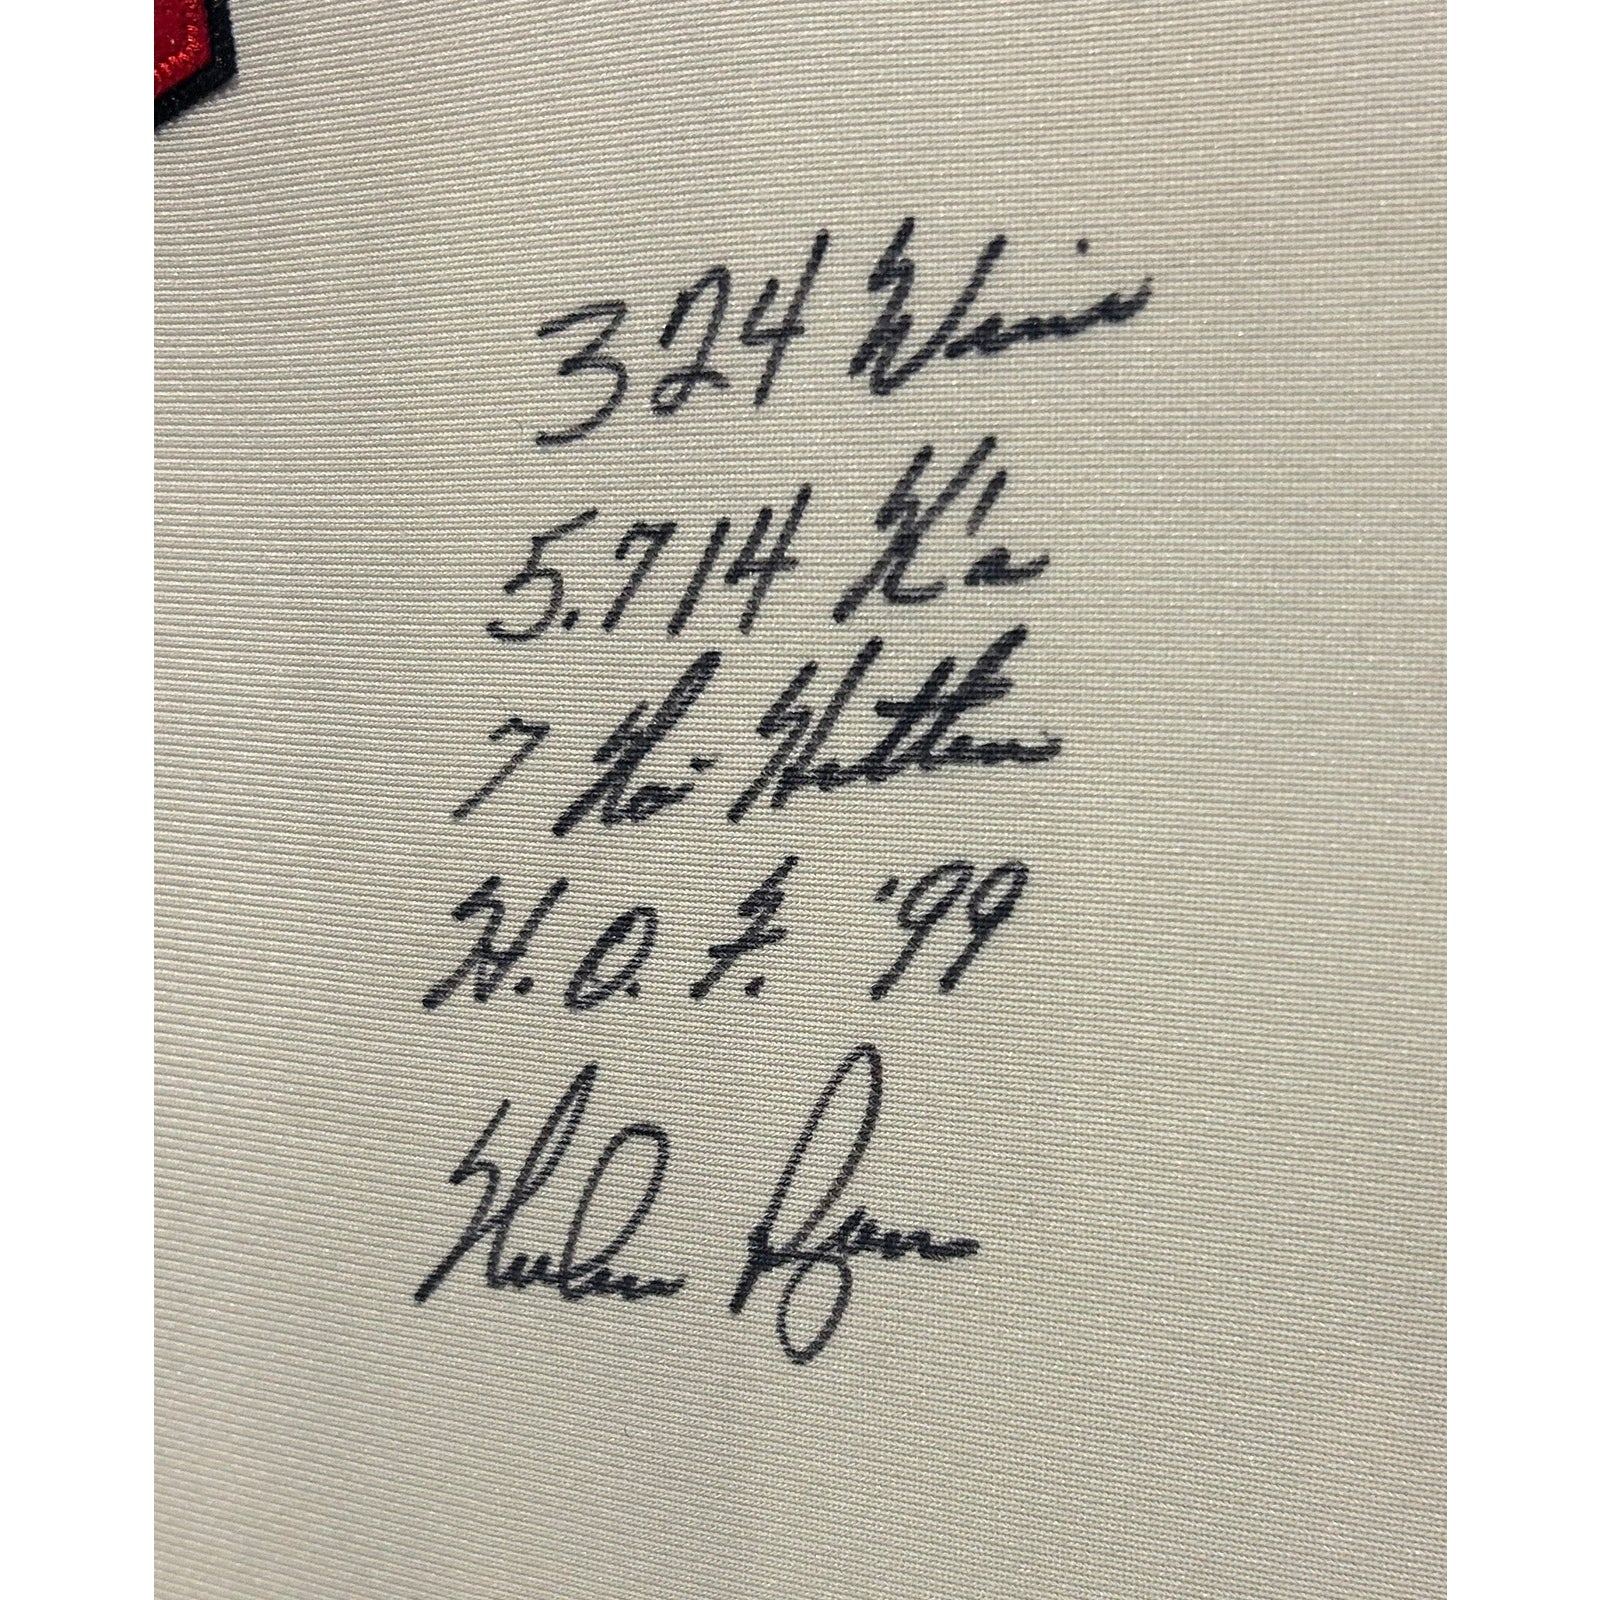 324 Wins
5,714 K's
7 No-Hitters
H.O.F. '99
Nolan Ryan